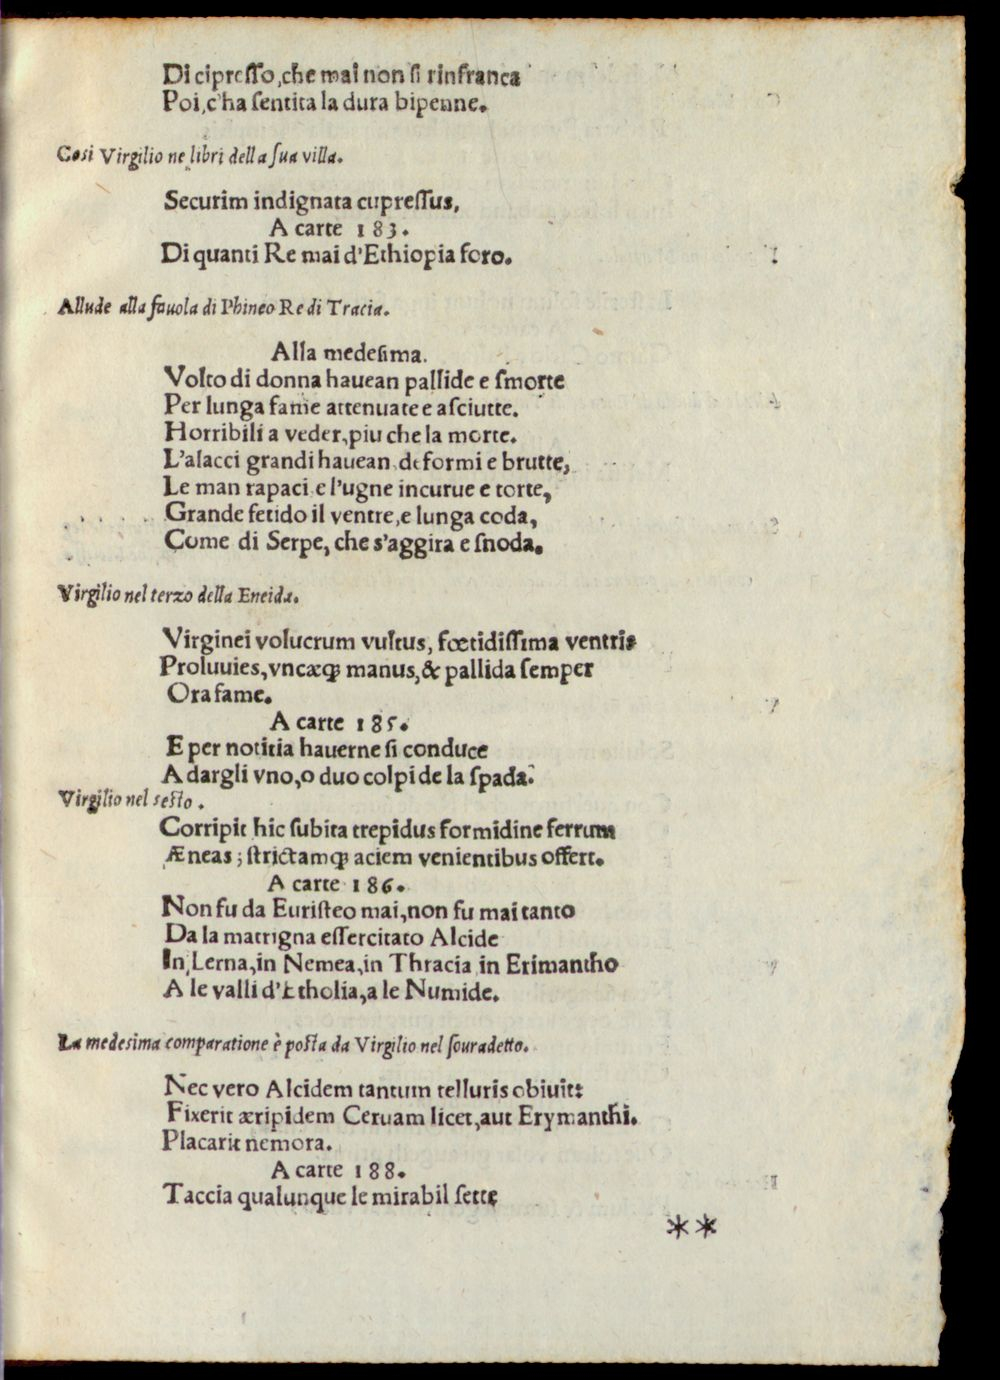 Di cipreſſo, che mai non ſi rinfranca
Poi, c'ha ſentita la dura bipenne.
Coſi Virgilio ne libri della ſua villa.
Securim indignata cupreſſus,
A carte 183.
Di quanti Re mai d'Ethiopia foro.
Allude alla fauola di Phineo Re di Tracia.
Alla medeſima.
Volto di donna hauean pallide e ſmorte
Per lunga fame attenuate e aſciutte.
Horribili a veder, piu che la morte.
L'alacci grandi hauean deformi e brutte,
Le man rapaci e l'ugne incurue e torte,
Grande fetido il ventre, e lunga coda,
Come di Serpe, che s'aggira e ſnoda.
Virgilio nel terzo della Eneida.
Virginei volucrum vultus, fœtidiſſima ventris
Proluuies, vncæqꝫ manus, & pallida ſemper
Ora fame.
A carte 185.
E per notitia hauerne ſi conduce
A dargli vno, o duo colpi de la ſpada.
Virgilio nel ſeſto.
Corripit hic ſubita trepidus formidine ferrum
Æneas; ſtrictamqꝫ aciem venientibus offert.
A carte 186.
Non fu da Euriſteo mai, non fu mai tanto
Da la matrigna eſſercitato Alcide
In Lerna, in Nemea, in Thracia in Erimantho
A le valli d'Etholia, a le Numide.
La medesima comparatione è poſta da Virgilio nel ſouradetto.
Nec vero Alcidem tantum telluris obiuit:
Fixerit æripidem Ceruam licet, aut Erymanthi.
Placarit nemora.
A carte 188.
Taccia qualunque le mirabil ſette
**